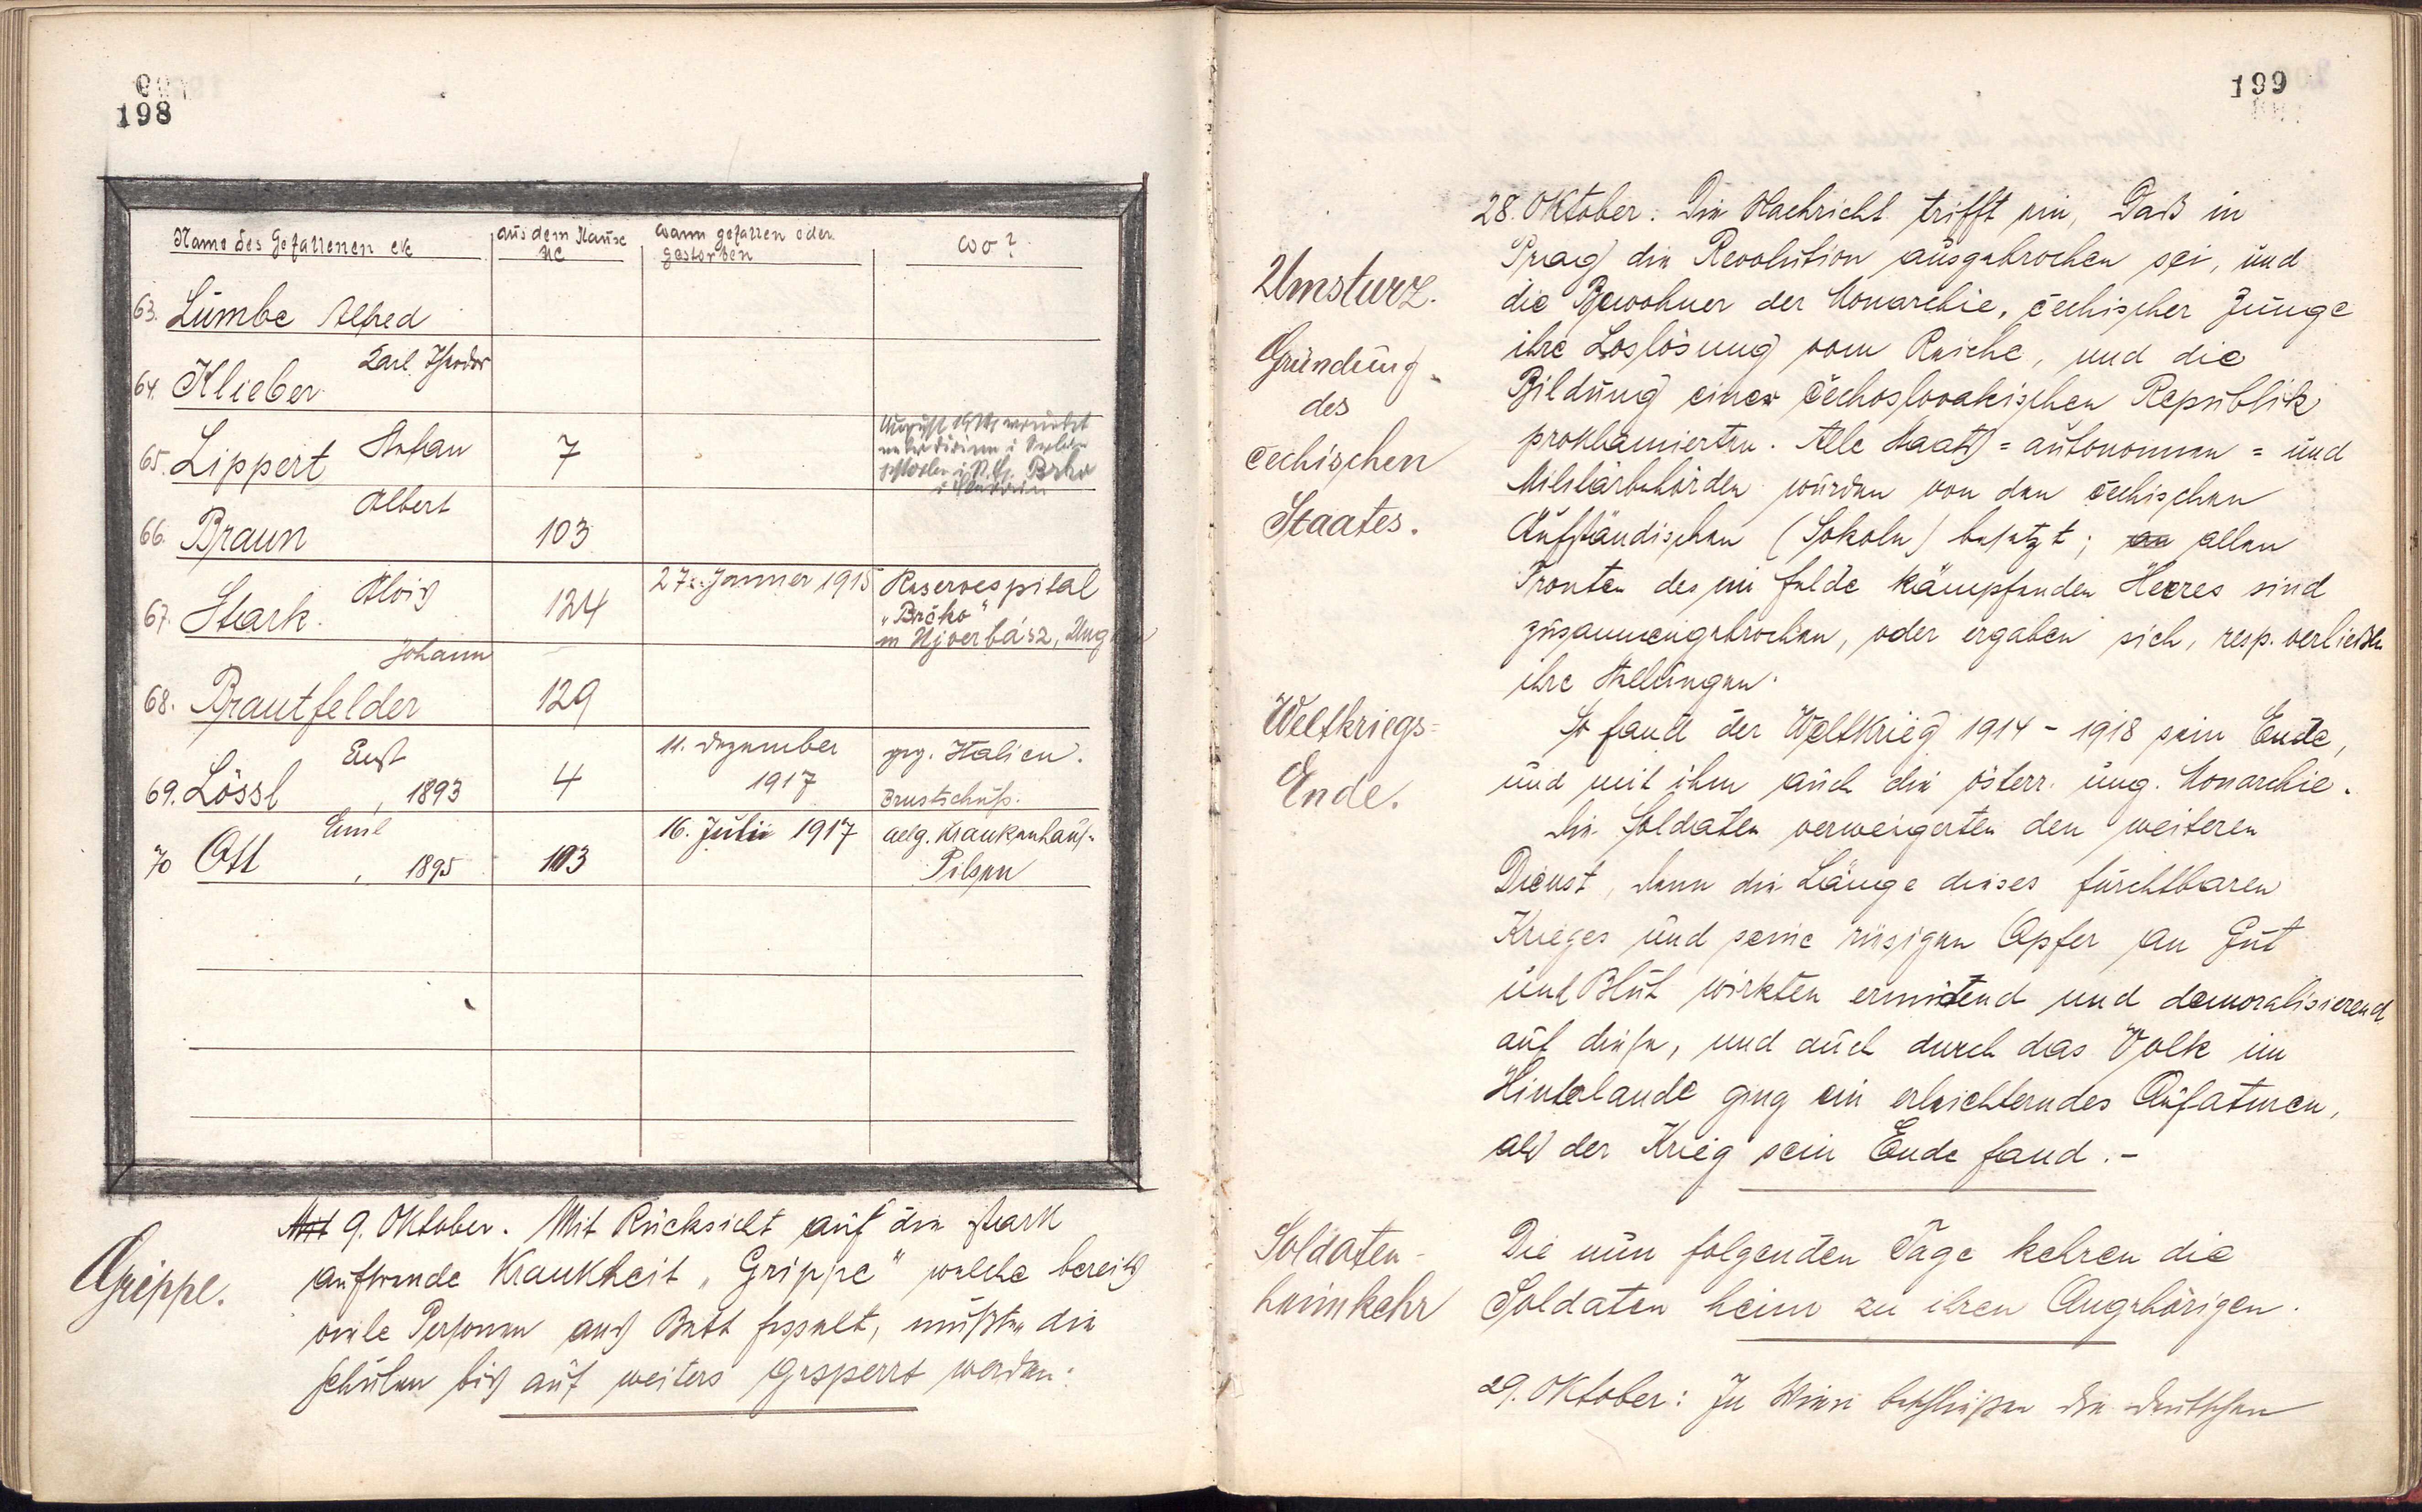 198
Name des Gefallenen etc
aus dem Hause NC
wann gefallen oder gestorben
wo?
63. Lumbe Alfred
64. Klieber Karl Theodor
65. Lippert Stefan 7 August
66. Braun Albert 103
67. Stark Alois 124 27. Jänner 1915 Reservespital
„Brčko"
in Ujverbász, Ungarn
68. Brautfelder Johann 129
69. Lössl Ernst, 1893 4 11. Dezember 1917 geg. Italien.
Brustschuß.
70 Ott Emil, 1895 103 16. Juli 1917 allg. Krankenhaus
Pilsen
Grippe.
Mit 9. Oktober. Mit Rücksicht auf die stark
auftretende Krankheit „Grippe" welche bereits
viele Personen ans Bett fesselt, mußten die
Schulen bis auf weiters gesperrt werden.
199
28. Oktober. Die Nachricht trifft ein, daß in
Prag die Revolution ausgebrochen sei, und
Umsturz.
die Bewohner der Monarchie, čechischer Zunge
Gründung
ihre Loslösung vom Reiche, und die
des
Bildung einer čechoslovakischen Republik
čechischen
proklamierten. Alle Staats = autonomen = und
Militärbehörden wurden von den čechischen
Staates.
Aufständischen (Sokoln) besetzt; an allen
Fronten des im Felde kämpfenden Heeres sind
zusammengebrochen, oder ergaben sich, resp. verließen
ihre Stellungen.
Weltkriegs=
So fand der Weltkrieg 1914 – 1918 sein Ende,
Ende.
und mit ihm auch die österr. ung. Monarchie.
Die Soldaten verweigerten den weiteren
Dienst, denn die Länge dieses furchtbaren
Krieges und seine riesigen Opfer an Gut
und Blut wirkten ermüdend und demoralisierend
auf diese, und auch durch das Volk im
Hinterlande ging ein erleichterndes Aufatmen,
als der Krieg sein Ende fand. –
Soldaten-
Die nun folgenden Tage kehren die
heimkehr
Soldaten heim zu ihren Angehörigen.
29. Oktober: In Wien beschließen die deutschen